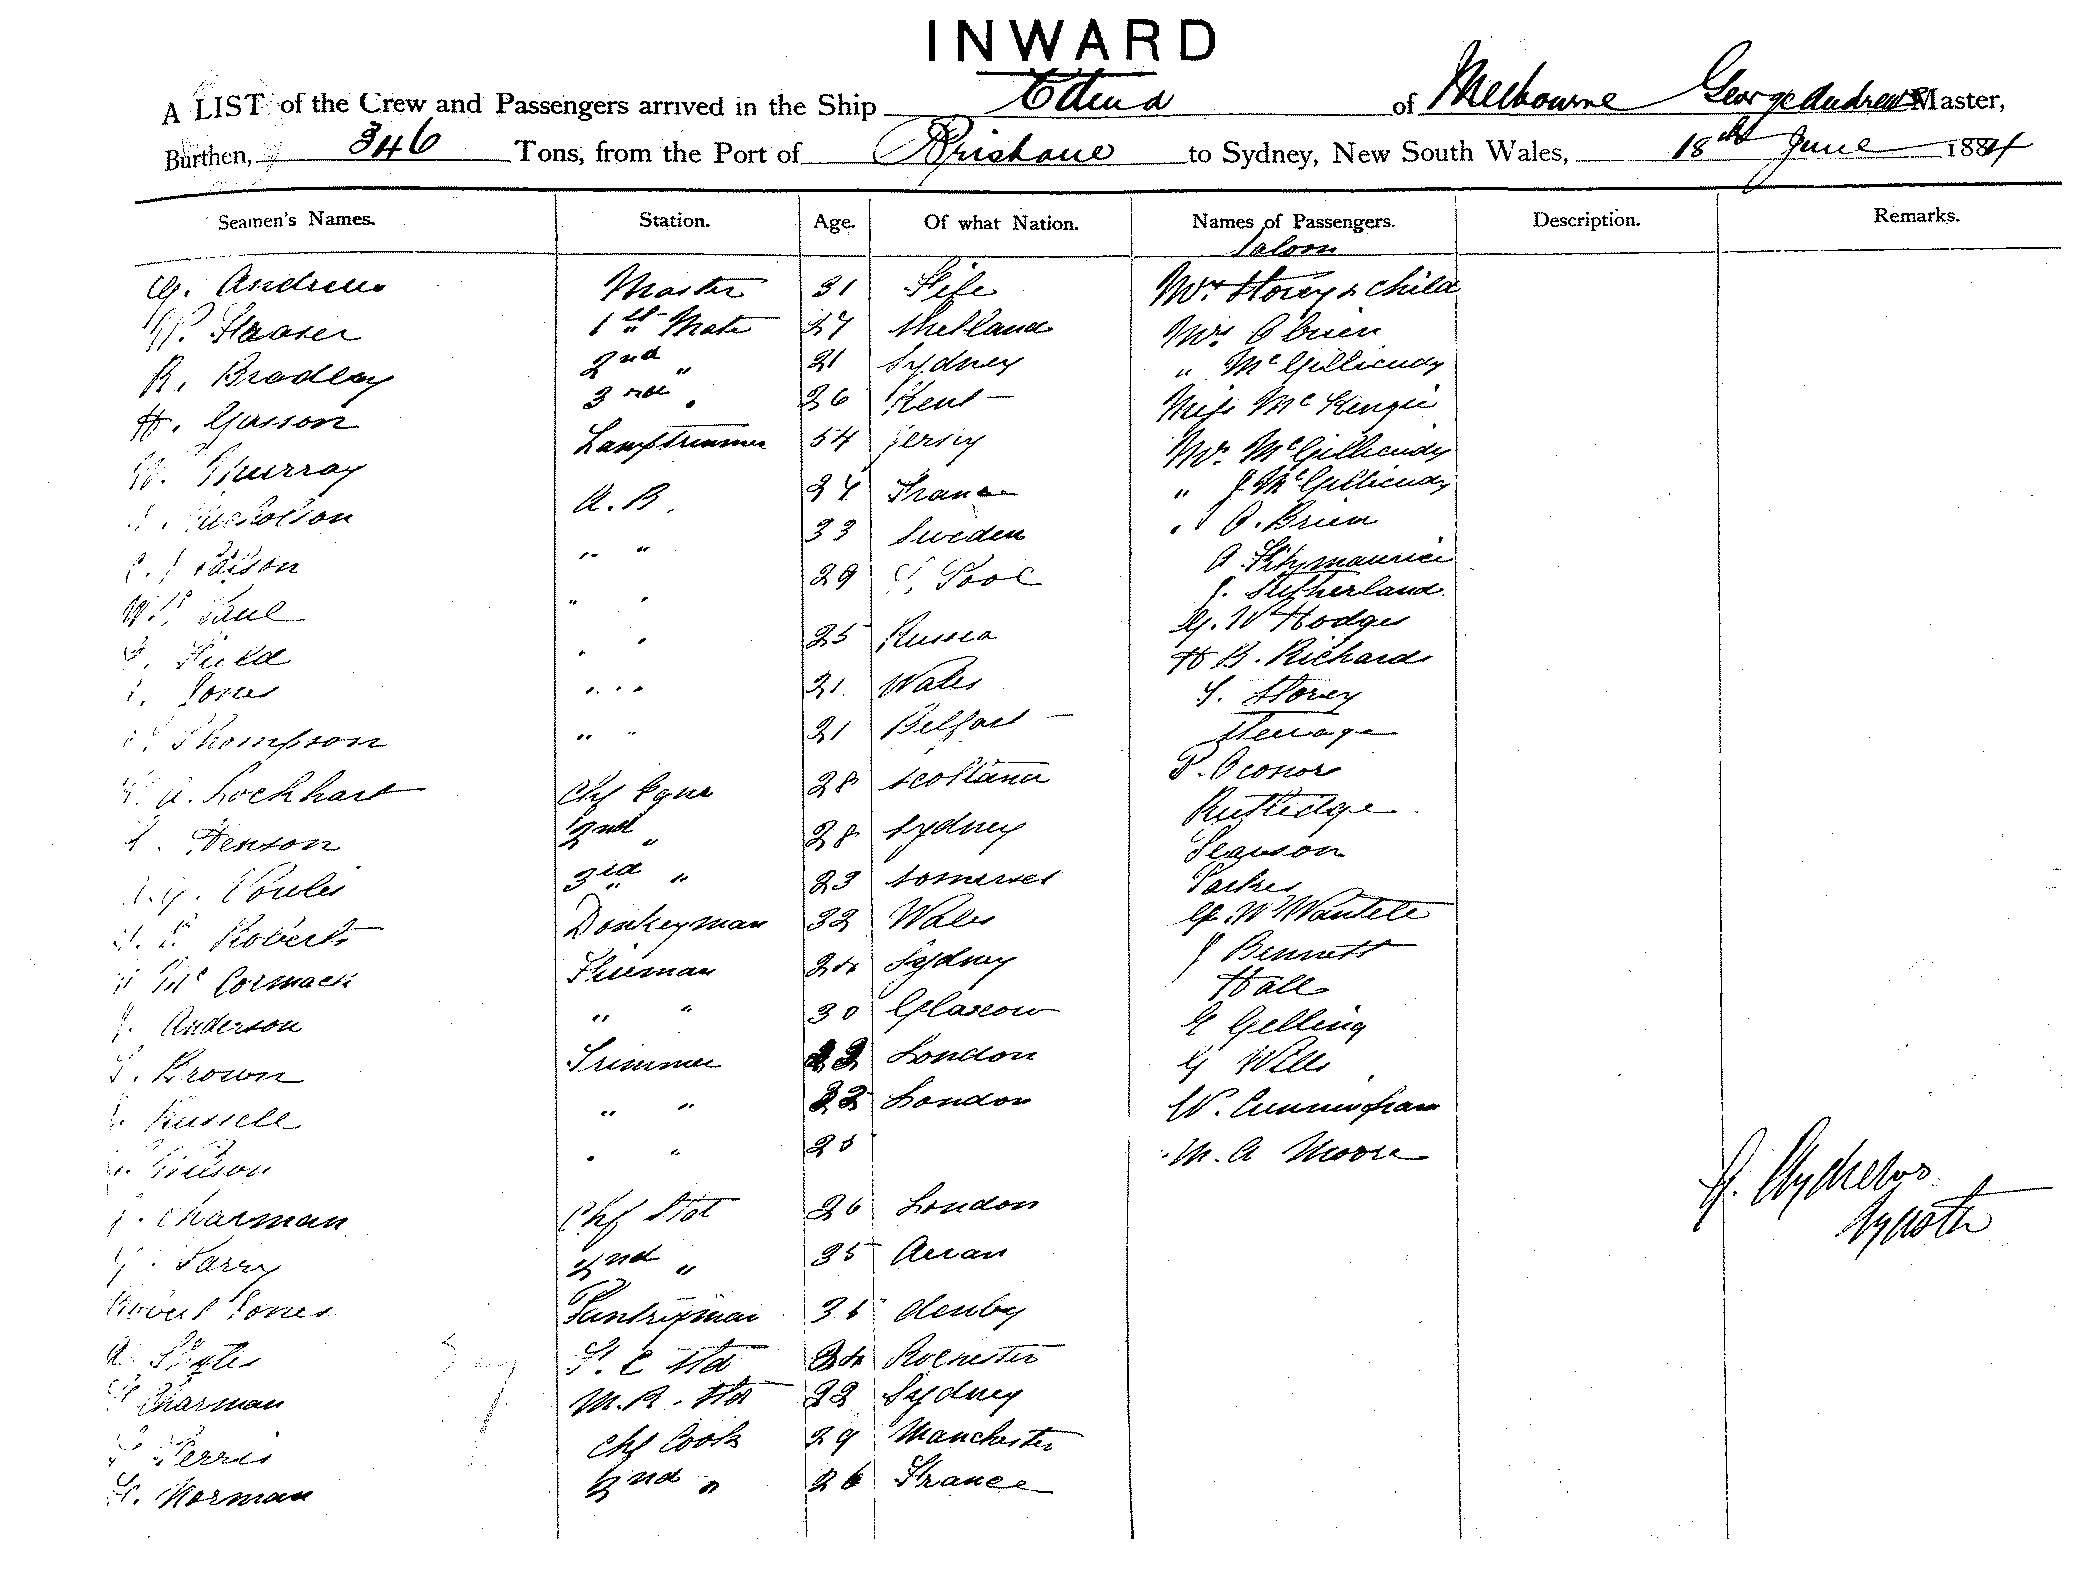 INWARD
A LIST of the Crew and Passengers arrived in the Ship of Melbourne George Andrews Master,
Burthen, 346 Tons, from the Port of Brisbane to Sydney, New South Wales, 18th June 1884
Seamen's Names. Station. Age. Of what Nation. Names of Passengers. Description. Remarks.
Saloon
G. Andrews Master 31 Fife Mrs Storey & Child
1st Mate 27 Shetland Mrs Obrien
R. Bradley 2nd " 21 Sydney " McGillicudy
H. Gasson 3rd 26 Kent Miss McKenzie
W. Murray Lamptrimmer 54 Jersey Mr. McGillicudy
Nicholson A.B. 27 France " J McGillicudy
" " 33 Sweden " O.Brien
W. Paul " " 29 L. Pool A Fitzmaurice
J. Sutherland
Field " " 25 Russia G. W Hodges
Jones " " 21 Wales H B. Richards
S. Storey
Thompson " " 21 Belfast Steerage
A. Lockhart Chf Egnr 28 Scotland P. Oconor
Denson 2nd " 28 Sydney Rutledge
Voules 3rd " 23 Somerset Pearson
Roberts Donkeyman 32 Wales Parker
McCormack Fireman 24 Sydney G W Wantele
J. Anderson " " 30 Glascow J Bennett
Brown Trimmer 22 London Hall
Russell " " 22 London G Gelling
" " 25 G Wills
J. Charman Chf Std 26 London W. Cunningham
Parry 2nd " 35 Arran M. A Moore
Robert Jones Pantryman 35 Denby
F. C Std 24 Rochester
Charman M.R. Std 22 Sydney
Perris Chf Cook 29 Manchester
Norman 2nd " 26 France